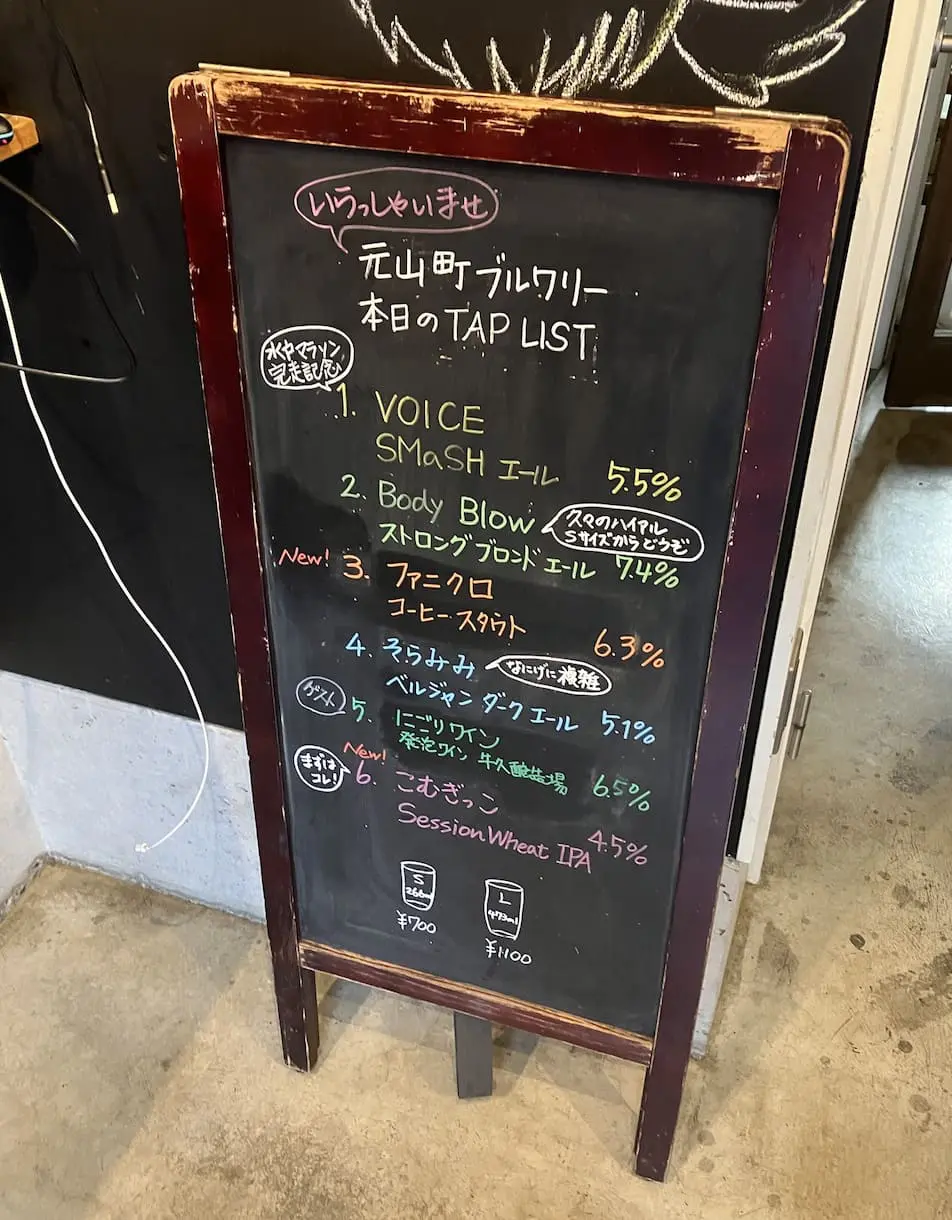 いらっしゃいませ
元山町ブルワリー
本日のTAP LIST
水戸マラソン
完走記念
1. VOICE
SMaSH エール 5.5%
2. Body Blow
久々のハイアル
Sサイズからどうぞ
ストロング ブロンド エール 7.4%
New! 3. ファニクロ
コーヒー スタウト 6.3%
4. そらみみ
なにげに複雑
ベルジャン ダーク エール 5.1%
ゲスト
5. にごりワイン
発泡ワイン 牛久醸造場 6.5%
New!
まずは
コレ!
6. こむぎっこ
Session Wheat IPA 4.5%
S
266ml
¥700
L
473ml
¥1100